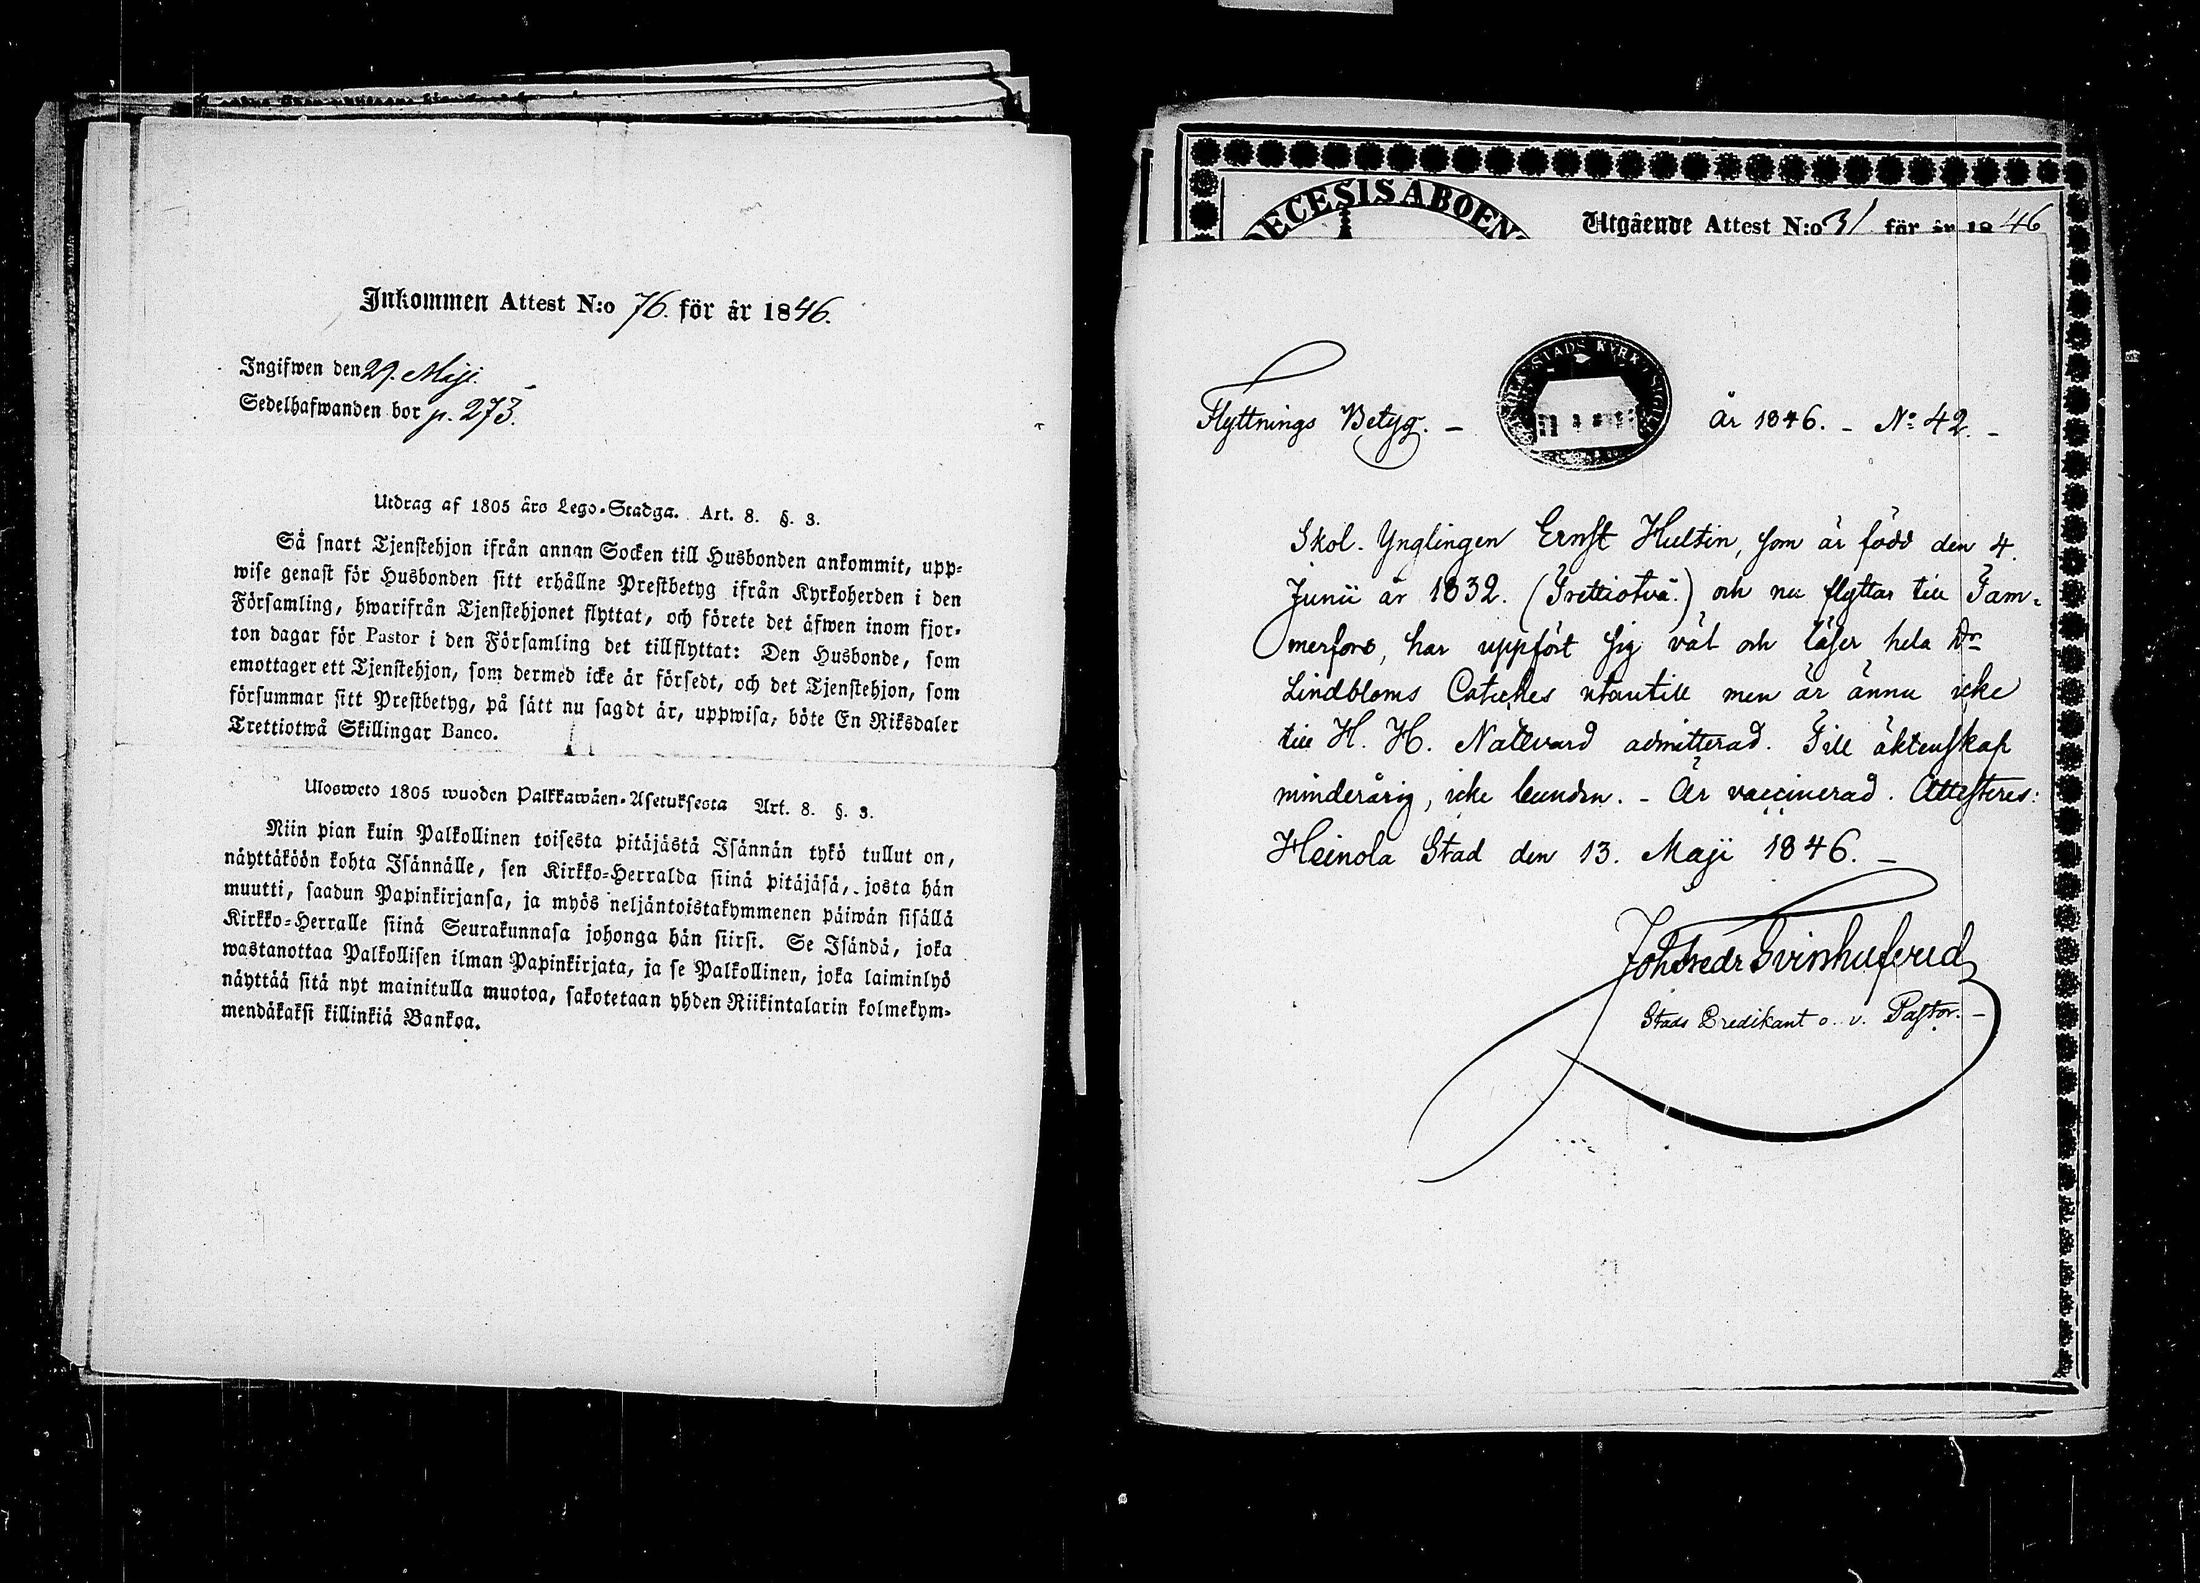 Inkommen Attest N:o 76. för år 1846.
Ingifwen den 29. Maji.
Sedelhafwanden bor p. 273.
Utdrag af 1805 års Lego-Stadga. Art. 8. §. 3.
Så snart Tjenstehjon ifrån annan Socken till Husbonden ankommit, upp-
wise genast för Husbonden sitt erhållne Prestbetyg ifrån Kyrkoherden i den
Församling, hwarifrån Tjenstehjonet flyttat, och förete det äfwen inom fjor-
ton dagar för Pastor i den Församling det tillflyttat: Den Husbonde, som
emottager ett Tjenstehjon, som dermed icke är försedt, och det Tjenstehjon, som
försummar sitt Prestbetyg, på sätt nu sagdt är, uppwisa, böte En Riksdaler
Trettiotwå Skillingar Banco.
Ulosweto 1805 wuoden Palkkawäen-Asetuksesta Art. 8. §. 3.
Niin pian kuin Palkollinen toisesta pitäjästä Isännän tykö tullut on,
näyttäköön kohta Isännälle, sen Kirkko-Herralda siinä pitäjäsä, josta hän
muutti, saadun Papinkirjansa, ja myös neljäntoistakymmenen päiwän sisällä
Kirkko-Herralle siinä Seurakunnasa johonga hän siirsi. Se Isändä, joka
wastanottaa Palkollisen ilman Papinkirjata, ja se Palkollinen, joka laiminlyö
näyttää sitä nyt mainitulla muotoa, sakotetaan yhden Riikintalarin kolmekym-
mendäkaksi killinkiä Bankoa.
ECESIS ABOEN
Utgående Attest N:o 31 för år 1846
Flyttnings Betyg. – År 1846. – No: 42. –
STADS KYRKO
Skol. Ynglingen Ernst Hultin, som är född den 4.
Junii år 1832. (Trettiotvå.) och nu flyttar till Tam-
merfors, har uppfört sig väl och läser hela Dr
Lindbloms Cateches utantill men är ännu icke
till H. H. Nattvard admitterad. Till äktenskap
minderårig, icke bunden. – Är vaccinerad. Attesteras:
Heinola Stad den 13. Maji 1846. –
Joh Fredr Svinhufvud
Stads Predikant o. v. Pastor. –